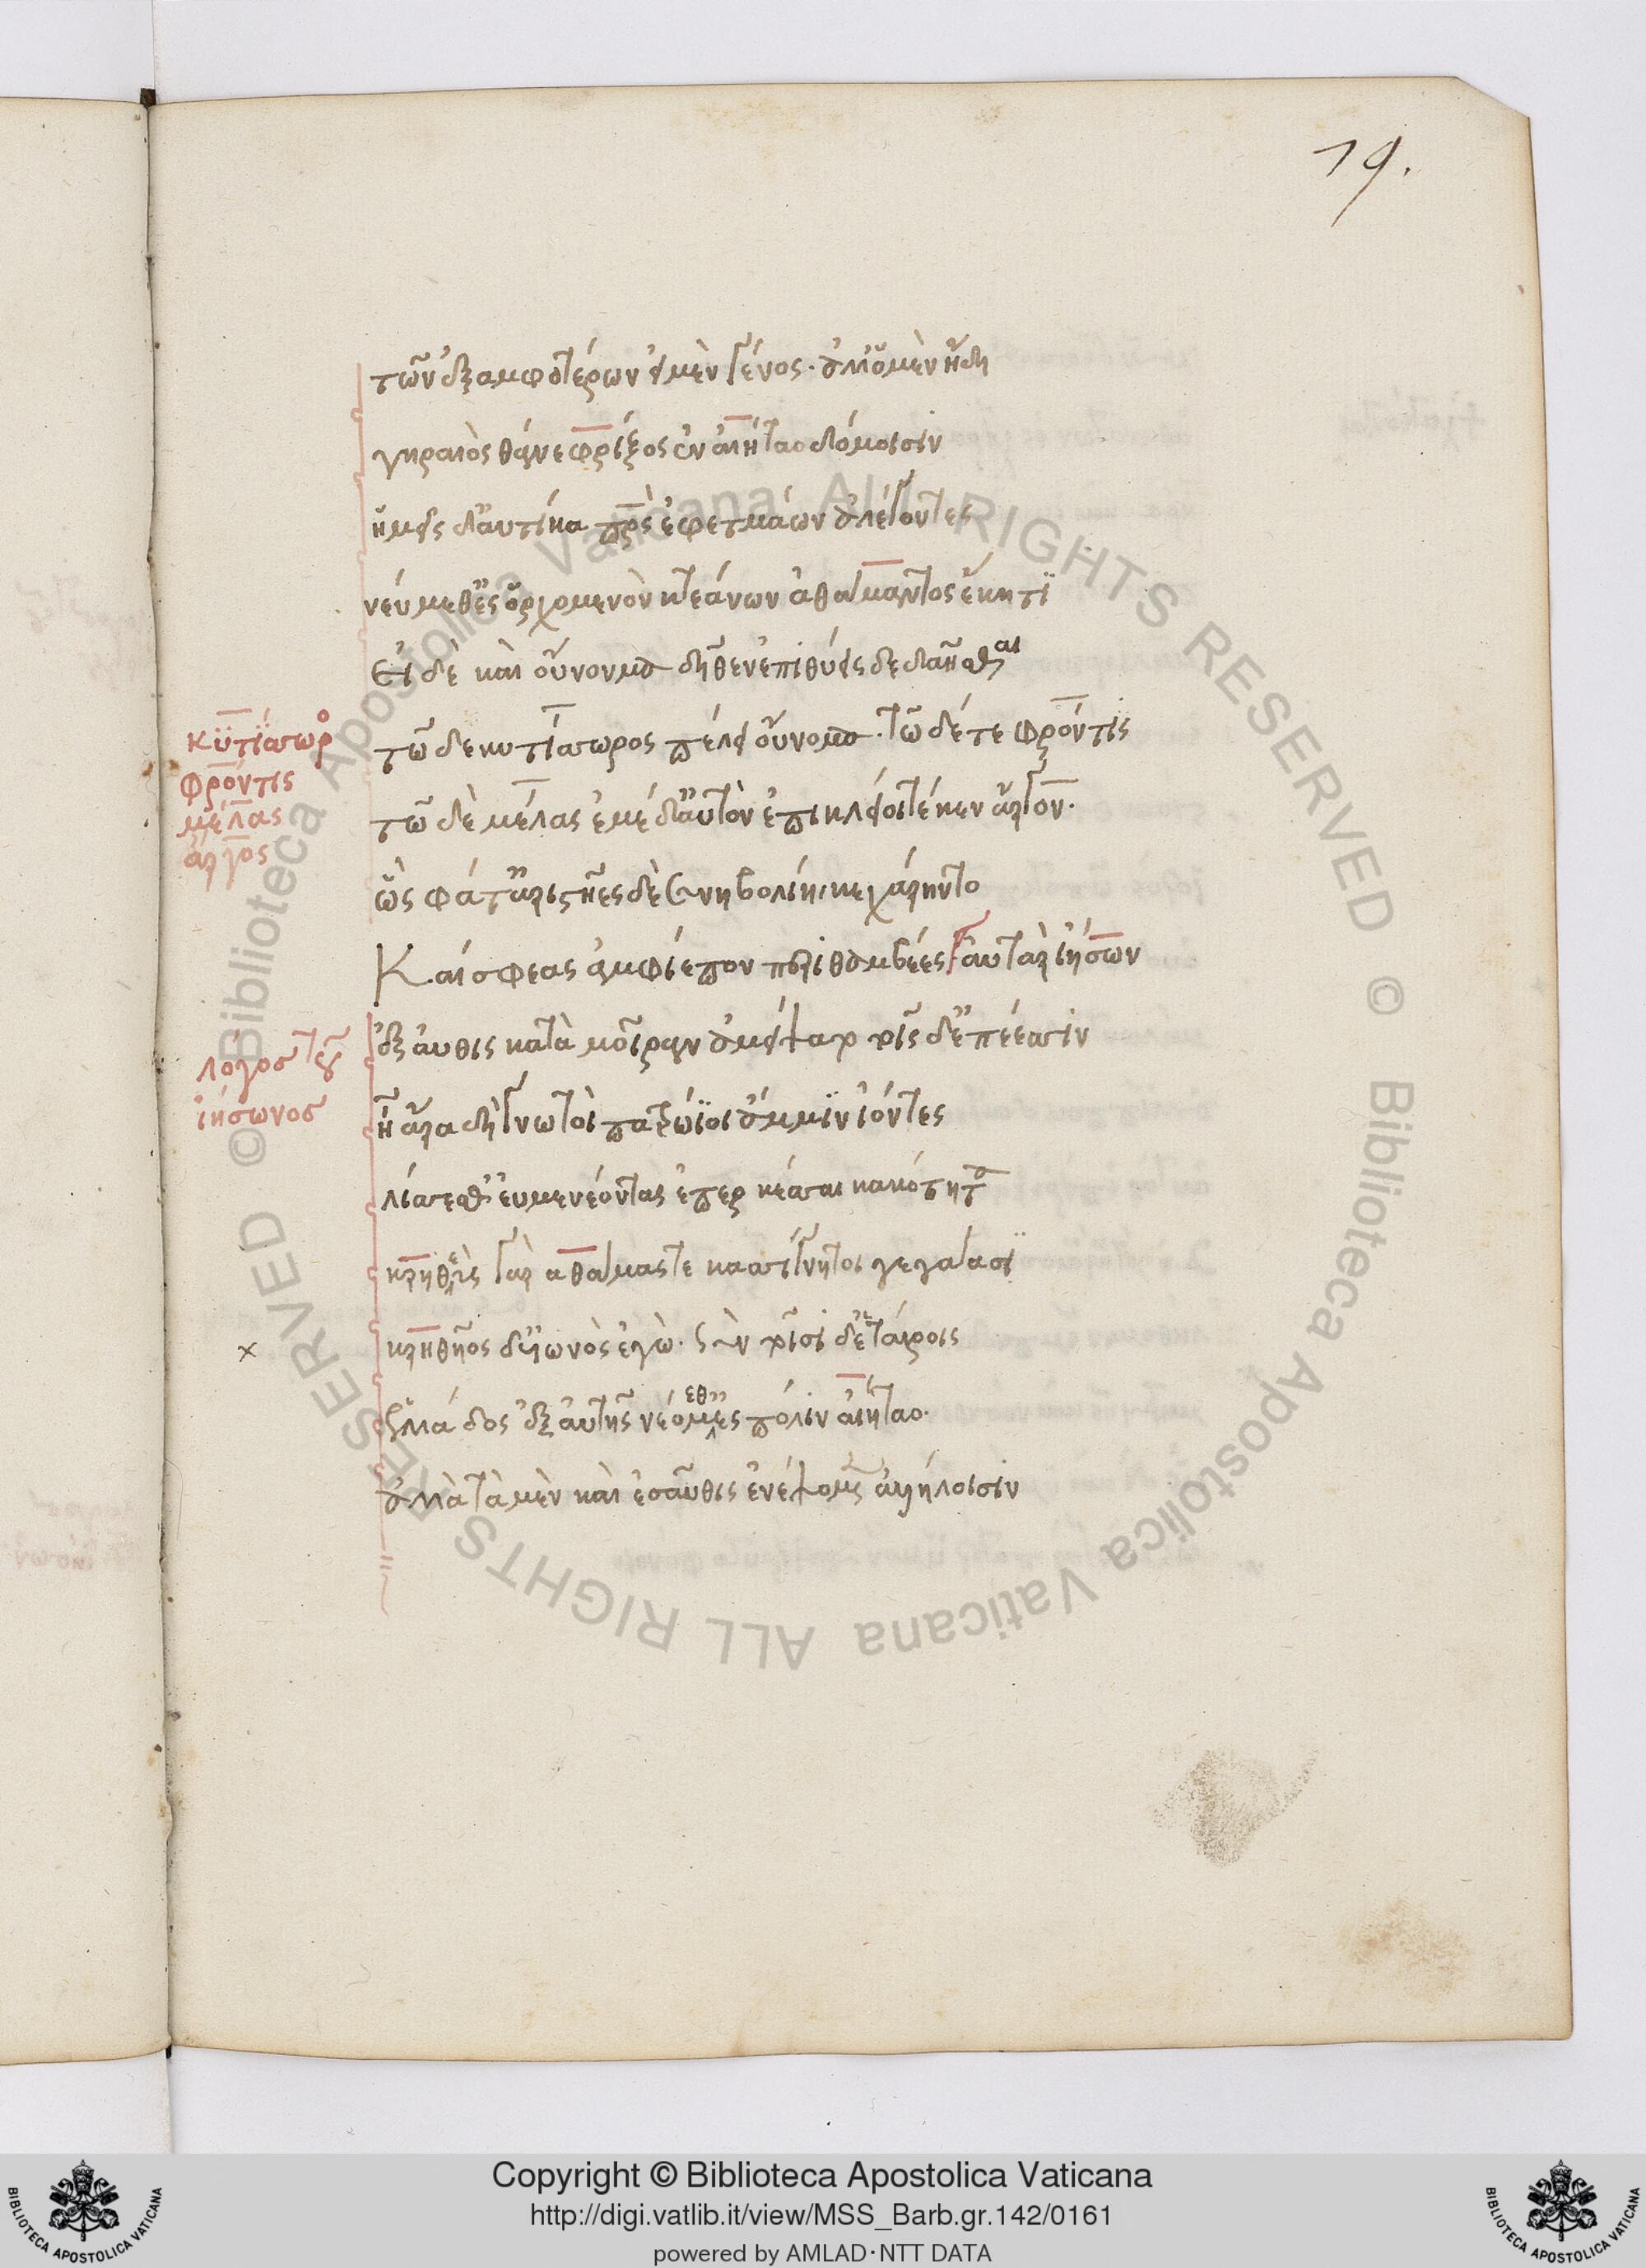 19.
τῶν ἐξ ἀμφοτέρων εἰμὲν γένος. ἀλλ' ὁ μὲν ἤδη
γηραιὸς θάνε φρίξος ἐν αἰήταο δόμοισιν
ἡμεῖς δ' αὐτίκα πρὸς ἐφετμάων ἀλέγοντες
νεύμεθ' ἐς ὀρχομενὸν κτεάνων ἀθάμαντος ἕκητι
Εἰ δὲ καὶ οὔνομα δῆθεν ἐπιθύεις δεδαῆσθαι
τῶ δε κυτίσωρος πέλει οὔνομα. τῶ δέ τε φρόντις
τῶ δὲ μέλας ἐμὲ δ' αὐτὸν ἐπικλείοιτέ κεν ἄργον.
κϋτΐσωρος
φρόντις
μέλας
ἄργος
ὣς φάτ' ἀριστῆες δὲ συνηβολίη κεχάρηντο
Καί σφεας ἀμφίεπον περιθαμβέες αὐτὰρ ἰήσων
ἐξ αὖθις κατὰ μοῖραν ἀμείψατο τοῖσδ' ἐπέεσσιν
λόγοσ τοῦ
ἰήσωνοσ
ἦ ἄρα δὴ γνωτοὶ πατρώϊοι ἄμμϊν ἰόντες
λίσσεσθ' εὐμενέοντας ἐπερκέσσαι κακότητα
κρηθεὺς γὰρ ἀθάμας τε κασίγνητοι γεγάασϊ
κρηθῆος δ' υἱωνὸς ἐγὼ. σὺν τοῖσι δ' ἑταίροις
ἑλλάδος ἐξ αὐτῆς νέομεθ' ἐς πόλιν αἰήταο.
ἀλλὰ τὰ μὲν καὶ ἐσαῦθις ἐνέψομεν ἀλλήλοισιν
Copyright © Biblioteca Apostolica Vaticana
http://digi.vatlib.it/view/MSS_Barb.gr.142/0161
powered by AMLAD·NTT DATA
BIBLIOTECA APOSTOLICA VATICANA
BIBLIOTECA APOSTOLICA VATICANA
© Biblioteca Apostolica Vaticana ALL RIGHTS RESERVED © Biblioteca Apostolica Vaticana ALL RIGHTS RESERVED